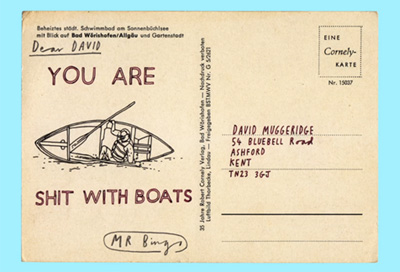 Beheiztes städt. Schwimmbad am Sonnenbüchlsee
mit Blick auf Bad Wörishofen/Allgäu und Gartenstadt
Dear DAVID
YOU ARE
SHIT WITH BOATS
MR Bingo
35 Jahre Robert Cornely Verlag, Bad Wörishofen — Nachdruck verboten
Luftbild Thorbecke, Lindau — Freigegeben BSTMWV Nr. G 5/2621
EINE
Cornely-
KARTE
Nr. 15037
DAVID MUGGERIDGE
54 BLUEBELL Road
ASHFORD
KENT
TN23 3GJ